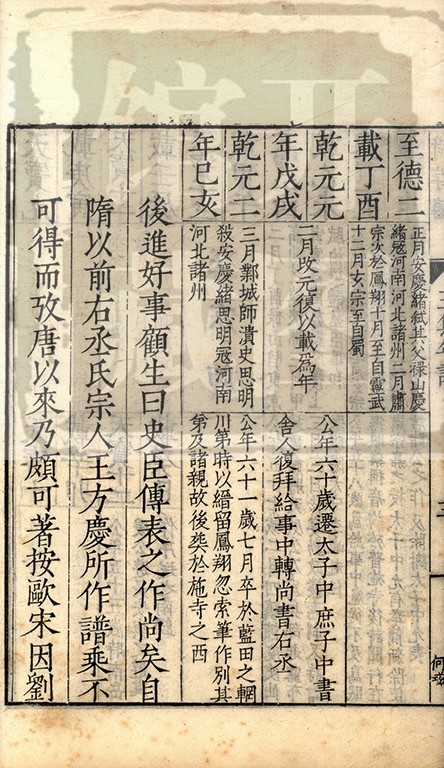 至德二
載丁酉
正月安慶緒弑其父祿山慶
緒冦河南河北諸州二月肅
宗次於鳳翔十月至自靈武
十二月玄宗至自蜀
乾元元
年戊戌
二月攺元復以載爲年
公年六十歲遷太子中庶子中書
舍人復拜給事中轉尚書右丞
乾元二
年巳亥
三月鄴城師潰史思明
殺安慶緒思明冦河南
河北諸州
公年六十一歲七月卒於藍田之輞
川第時以縉留鳳翔忽索筆作別其
弟及諸親故後葬於施寺之西
後進好事顧生曰史臣傳表之作尚矣自
隋以前右丞氏宗人王方慶所作譜乘不
可得而攷唐以來乃頗可著按歐宋因劉